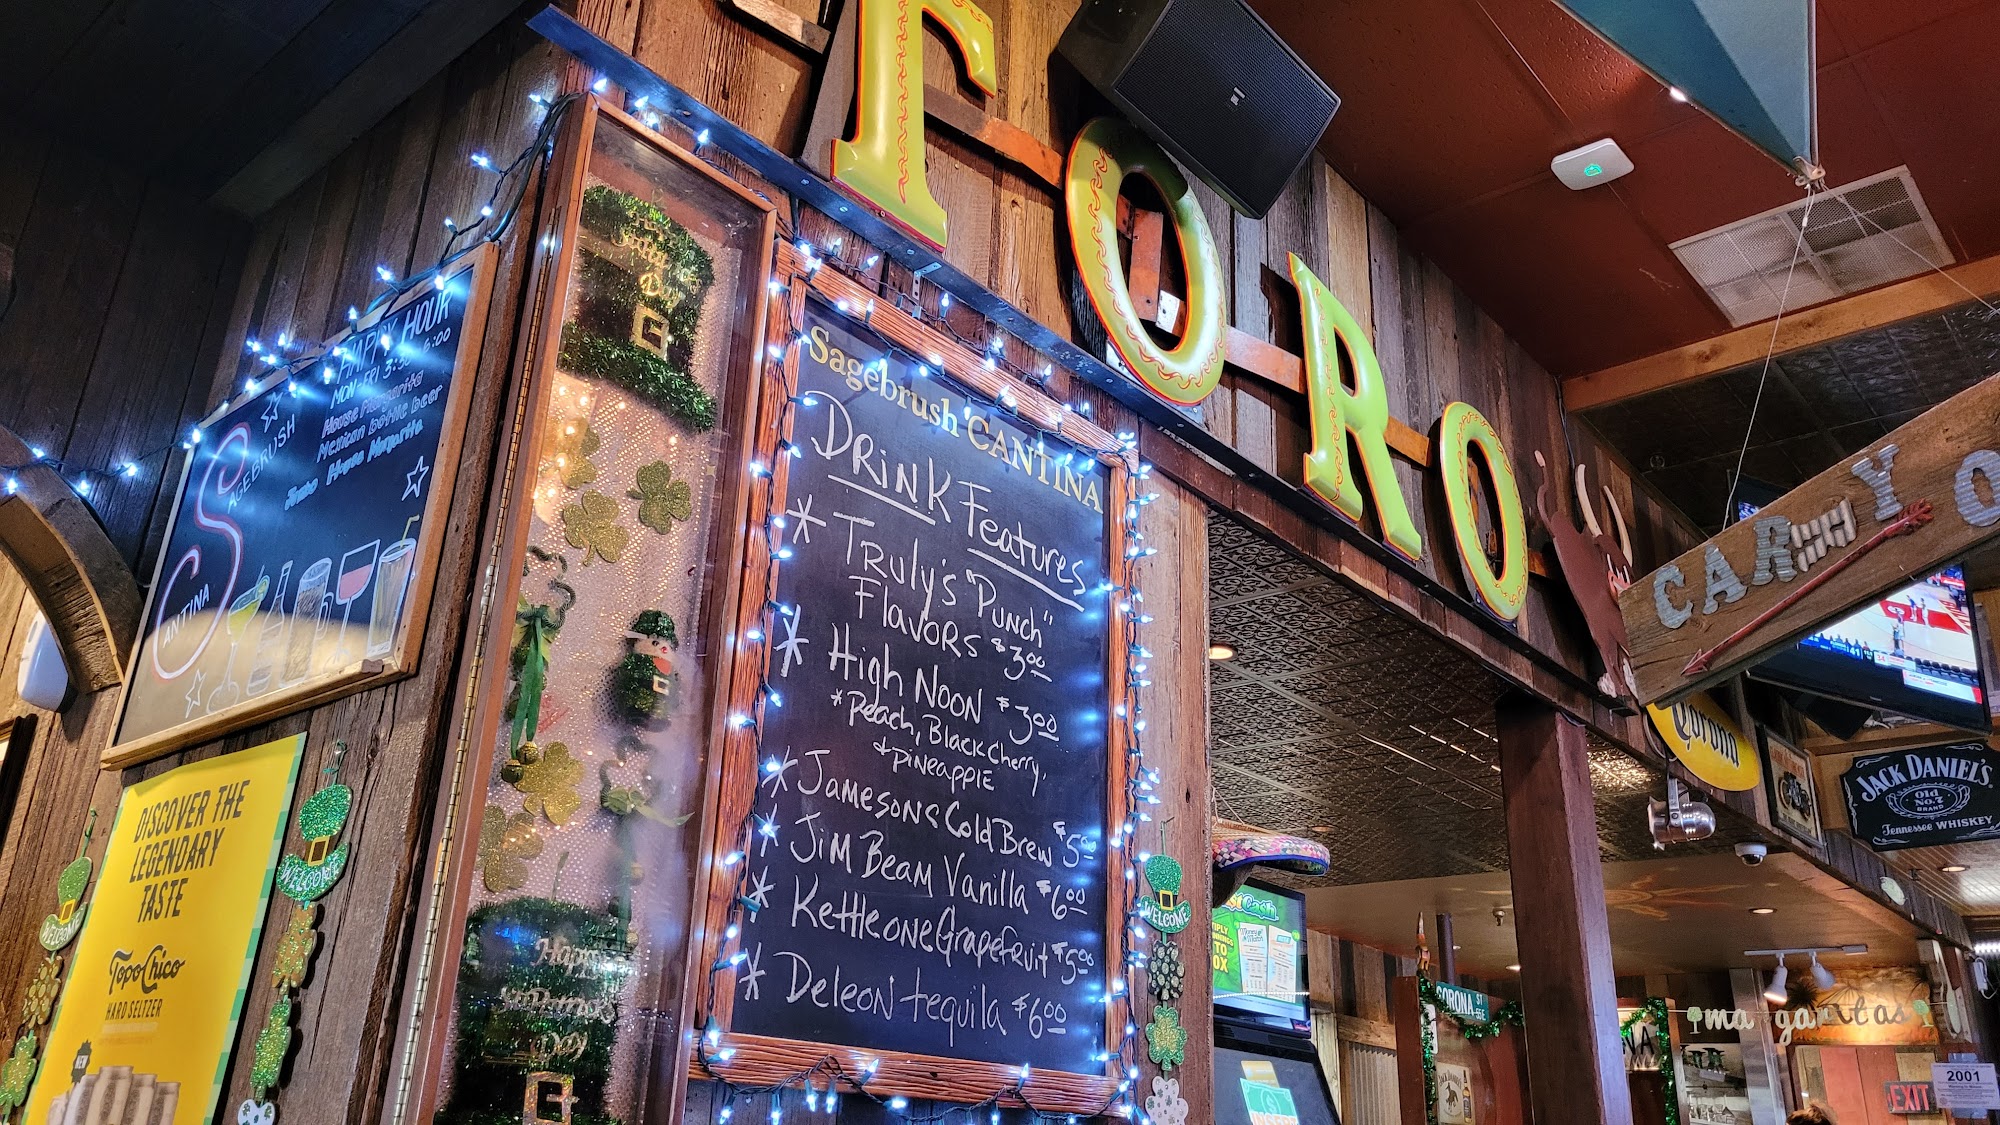 TORO
HAPPY HOUR
MON-FRI 3:30-6:00
House Margarita
Mexican bottle beer
Jumbo House Margarita
SAGEBRUSH
CANTINA
Happy
St. Patrick's
Day
Sagebrush CANTINA
DRINK Features
* TRULY'S "PUNCH"
FLAVORS $3.00
* High NOON $3.00
*Peach, Black Cherry,
& PINEAPPLE
* Jamesons Cold Brew $5.00
* Jim Beam Vanilla $6.00
* Kettle one Grapefruit $5.00
* Deleon tequila $6.00
DISCOVER THE
LEGENDARY
TASTE
Topo Chico
HARD SELTZER
NEW
WELCOME
WELCOME
WELCOME
Happy
St. Patrick's
Day
CAR
Y
O
Corona
JACK DANIEL'S
Old
No. 7
BRAND
Tennessee WHISKEY
Cash
CORONA ST
margaritas
2001
EXIT